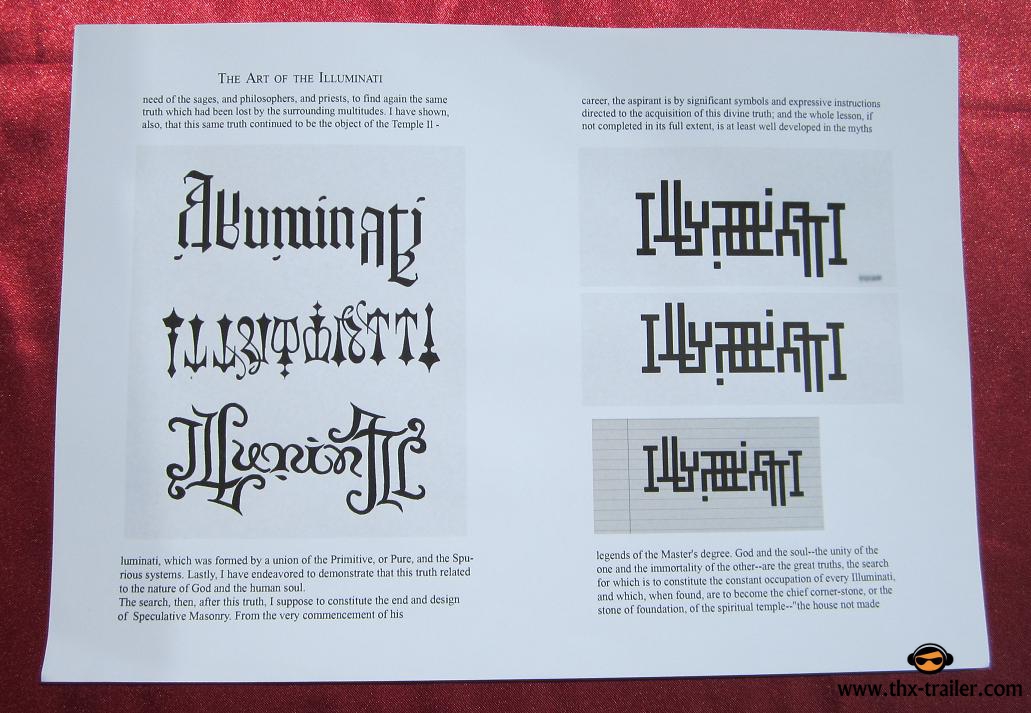 THE ART OF THE ILLUMINATI
need of the sages, and philosophers, and priests, to find again the same
truth which had been lost by the surrounding multitudes. I have shown,
also, that this same truth continued to be the object of the Temple Il -
Illuminati
Illuminati
Illuminati
luminati, which was formed by a union of the Primitive, or Pure, and the Spu-
rious systems. Lastly, I have endeavored to demonstrate that this truth related
to the nature of God and the human soul.
The search, then, after this truth, I suppose to constitute the end and design
of Speculative Masonry. From the very commencement of his
career, the aspirant is by significant symbols and expressive instructions
directed to the acquisition of this divine truth; and the whole lesson, if
not completed in its full extent, is at least well developed in the myths
Illuminati
Illuminati
Illuminati
legends of the Master's degree. God and the soul--the unity of the
one and the immortality of the other--are the great truths, the search
for which is to constitute the constant occupation of every Illuminati,
and which, when found, are to become the chief corner-stone, or the
stone of foundation, of the spiritual temple--"the house not made
www.thx-trailer.com